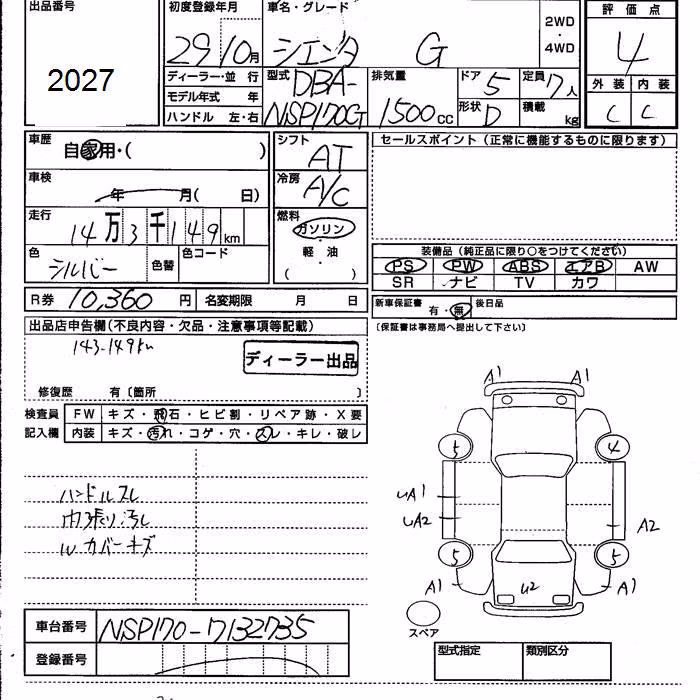 出品番号
2027
初度登録年月
29 10月
車名・グレード
シエンタ G
2WD
・
4WD
評価点
4
外装 内装
C C
ディーラー・並 行
モデル年式 年
ハンドル 左・右
型式
DBA-
NSP170G
排気量
1500cc
ドア 5
形状 D
定員 7人
積載 kg
車歴
自家用・( )
車検
年 月( 日)
走行
14万3千149km
色
シルバー
色替
色コード
シフト
AT
冷房
A/C
燃料
ガソリン
・
軽・油
( )
セールスポイント(正常に機能するものに限ります)
装備品(純正品に限り○をつけてください)
PS PW ABS エアB AW
SR ナビ TV カワ
R券 10,360 円 名変期限 月 日
新車保証書 有・無 後日品
(保証書は事務局へ提出して下さい)
出品店申告欄(不良内容・欠品・注意事項等記載)
143-149km
ディーラー出品
修復歴 有〔箇所 〕
検査員 FW キズ・飛石・ヒビ割・リペア跡・X要
記入欄 内装 キズ・汚れ・コゲ・穴・スレ・キレ・破レ
ハンドルスレ
内張り汚レ
Wカバーキズ
A1 A1
5 4
UA1
UA2
A2
5 5
A1 U2 A1
スペア
車台番号 NSP170-7132735
登録番号
型式指定 類別区分